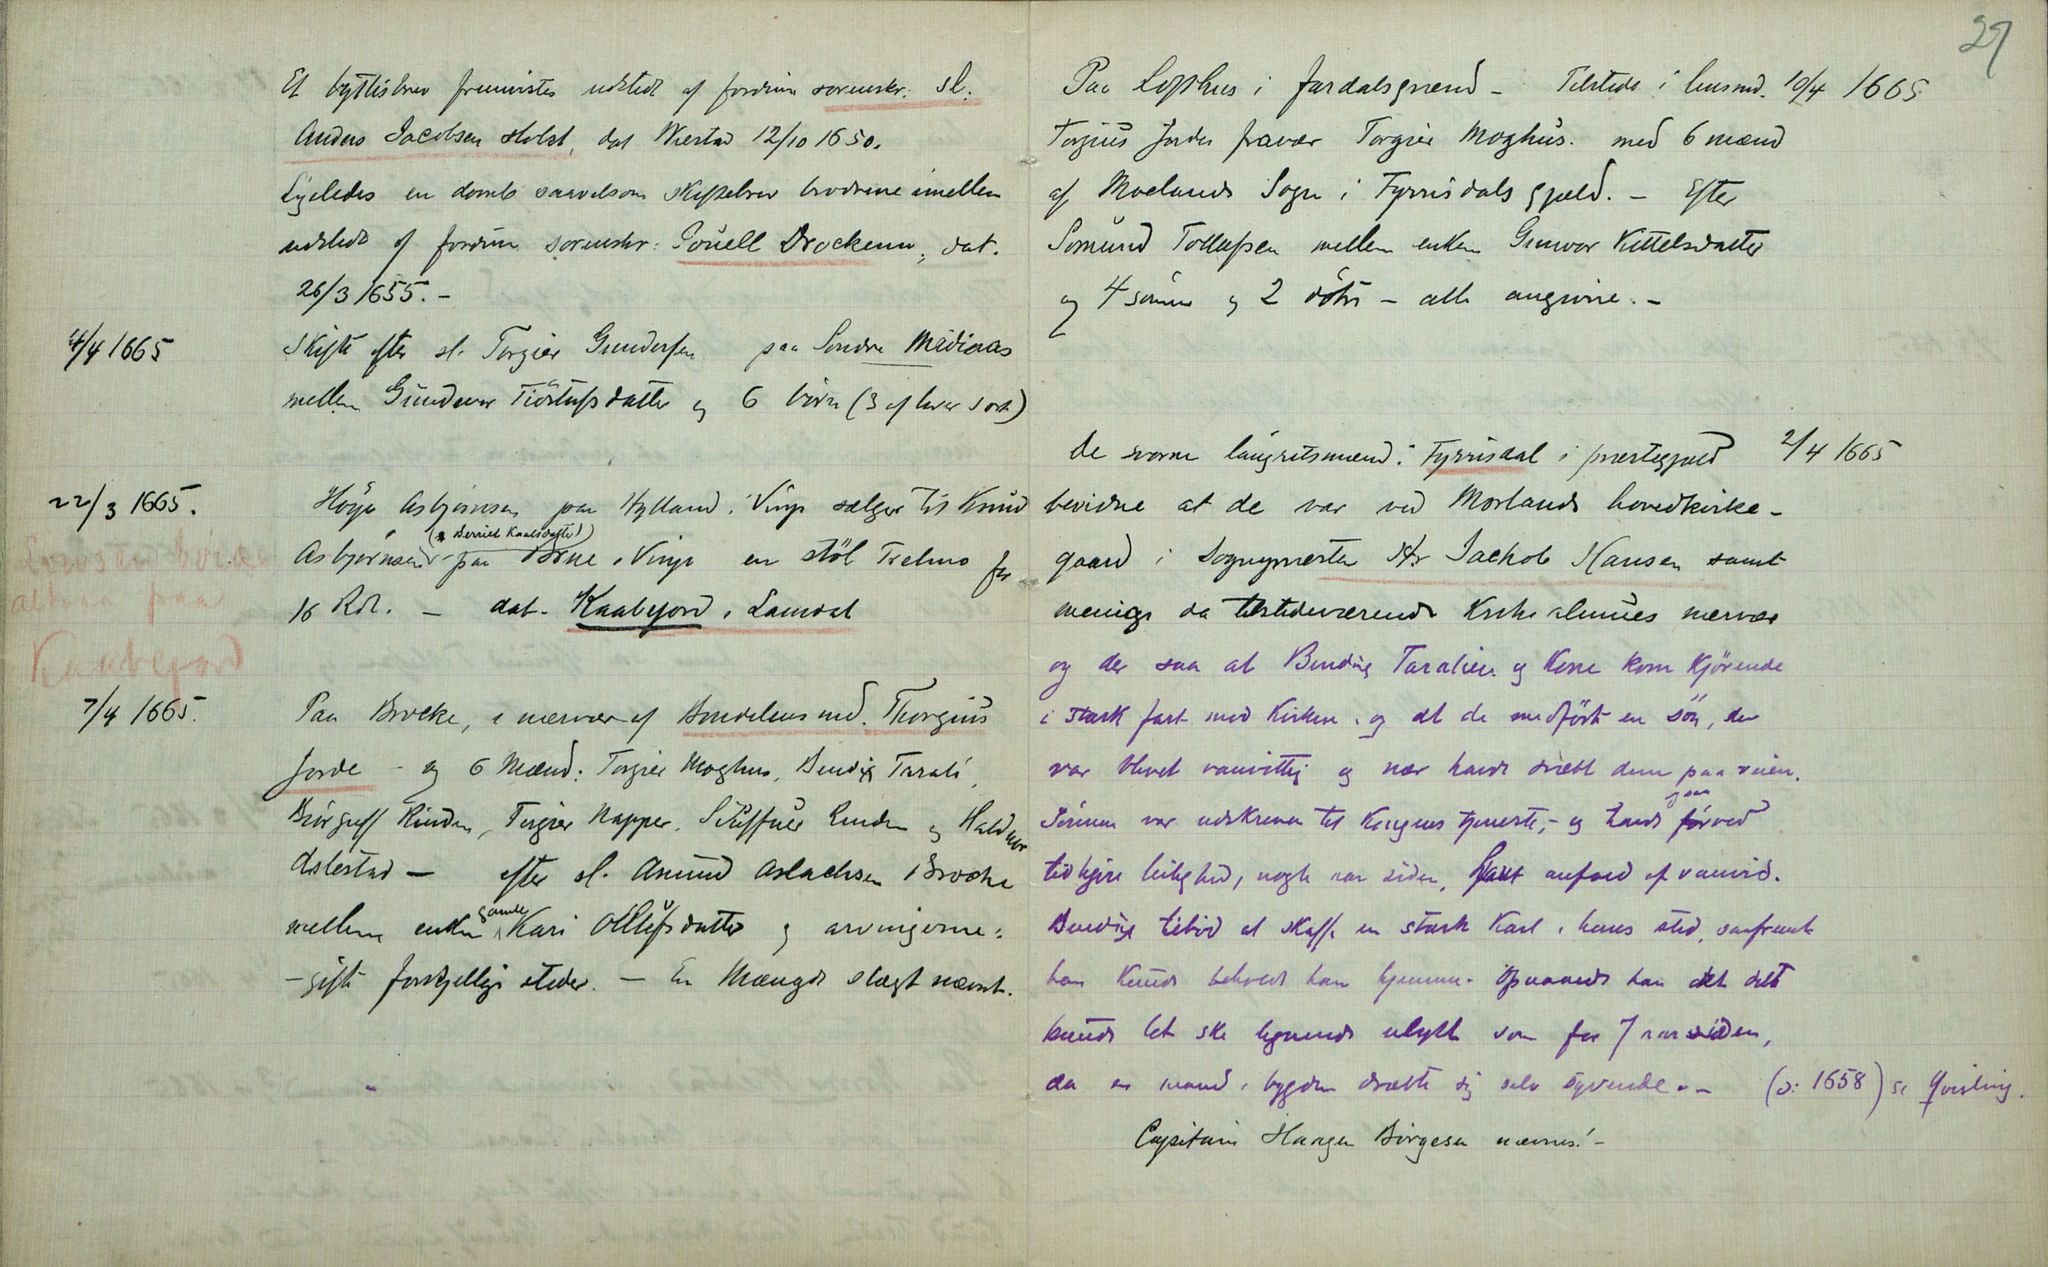 Et byttisbrev fremvistes udstedt af fordum sorenskr. Sl.
Anders Jacobsen Holst, dat Næstad 12/10 1650.
Ligeledes en domb saavelsom Skiftebrev brødrene imellem
udstedt af fordum sorenskr: Povell Drockenn, dat.
26/3 1655. -
4/4 1665
Skifte efter sl. Torgier Gundersen paa Søndre
mellem Gunduor Tiostufsdatter og 6 børn (3 af hver sort)
22/3 1665.
Høye Asbjørnsen paa Hylland i Vinje sælger til Knud
(& Berriel Kaalsdatter)
Asbjørnsen paa Bøne i Vinje en støl Trelmo for
16 Rdl. - dat. Kaabejord i Laurdal
Lovisen høies
altsaa paa
Kaabejord
7/4 1665.
Paa Brocke, i nærvær af Bondelensmd. Thorgius
Jorde - og 6 Mænd: Torgier Moghus, Bendix Tarali,
Biørguff Rinden, Torgier Napper, Steffuer Linden og Haldvor
Aslestad - efter sl. Amund Aslachsen Brocke
gamle
mellem enken Kari Ollufsdatter og arvingerne:
- gifte forskjellige steder. - En Mængde slægt nævnt.
27
Paa Lofthus i Fardalsgrænd - Tilstede i lensmd. 10/4 1665
Torgius Jordes fravær Torgier Moghus. med 6 mænd
af Moelands Sogn i Fyrrisdals gjæld. - Efter
Somund Tollefsen mellem enken Gunvor Kittelsdatter
og 4 sønner og 2 døtre - alle angivne. -
De svorne laugretsmænd i Fyrrisdal i præstegjæld 2/4 1665
bevidne at de var ved Morlands hovedkirke-
gaard i Sognepræsten Hr Jackob Hansen samt
menige da tilstedeværende Kirke almues nærvær
og der saa at Bendix Taralien og Kone kom kjørende
i stærk fart mod Kirken, og at de medførte en søn, der
var blevet vanvittig og nær havde dræbt dem paa veien.
ogsaa
Sønnen var udskreven til Kongens tjeneste, - og havde førved
tidligere leilighed, nogle aar siden, havt anfald af vanvid.
Bendix tilbød at skaffe en stærk Karl i hans sted, saafremt
han kunde beholde han hjemme. Opnaaede han ikke dette
kunde let ske lignende ulykke som for 7 aar siden,
da en mand i bygden dræbte sig selv syvende. - (ɔ: 1658) se Qvisling.
Capitain Haagen Børgesen nævnes! -